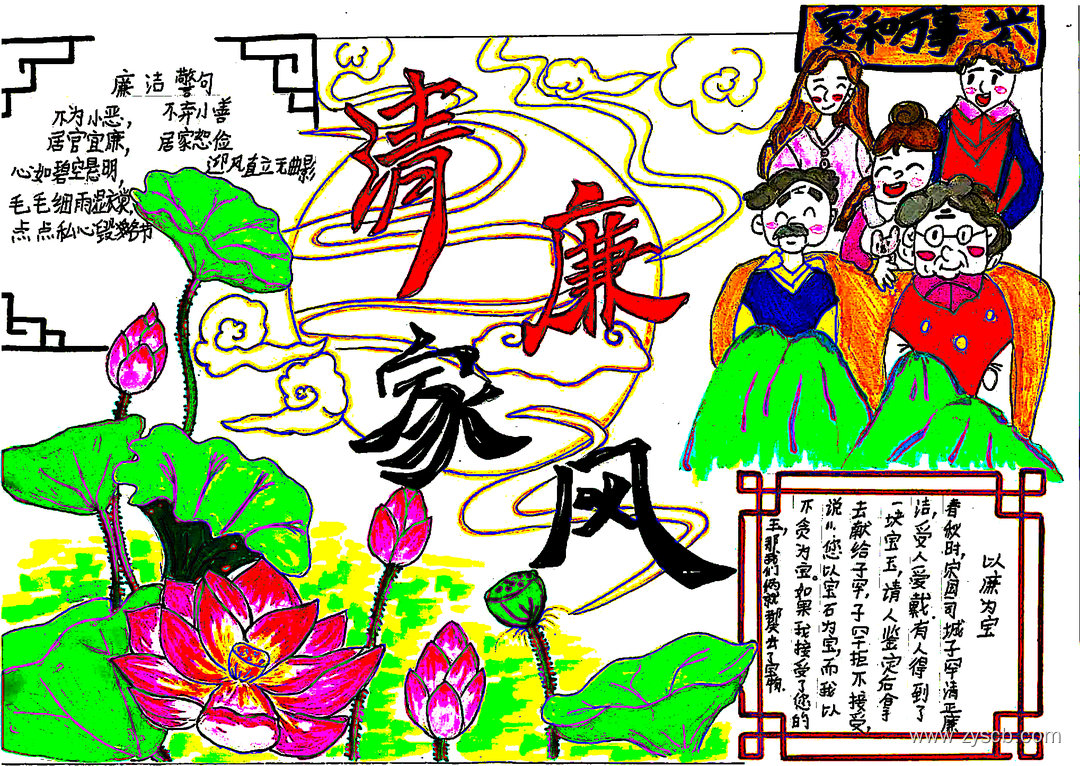 家和万事兴
清廉家风
廉洁警句
不为小恶， 不弃小善
居官宜廉， 居家恕俭
心如碧空悬明， 迎风直立无曲影
毛毛细雨湿衣裳，
点点私心毁名节
以廉为宝
春秋时，宋国司城子罕清正廉
洁，受人爱戴。有人得到了
一块宝玉，请人监定后拿
去献给子罕，子罕拒不接受，
说：“您以宝石为宝，而我以
不贪为宝。如果我接受了您的
玉，那我们俩就都失去了宝物。
www.zyscb.com